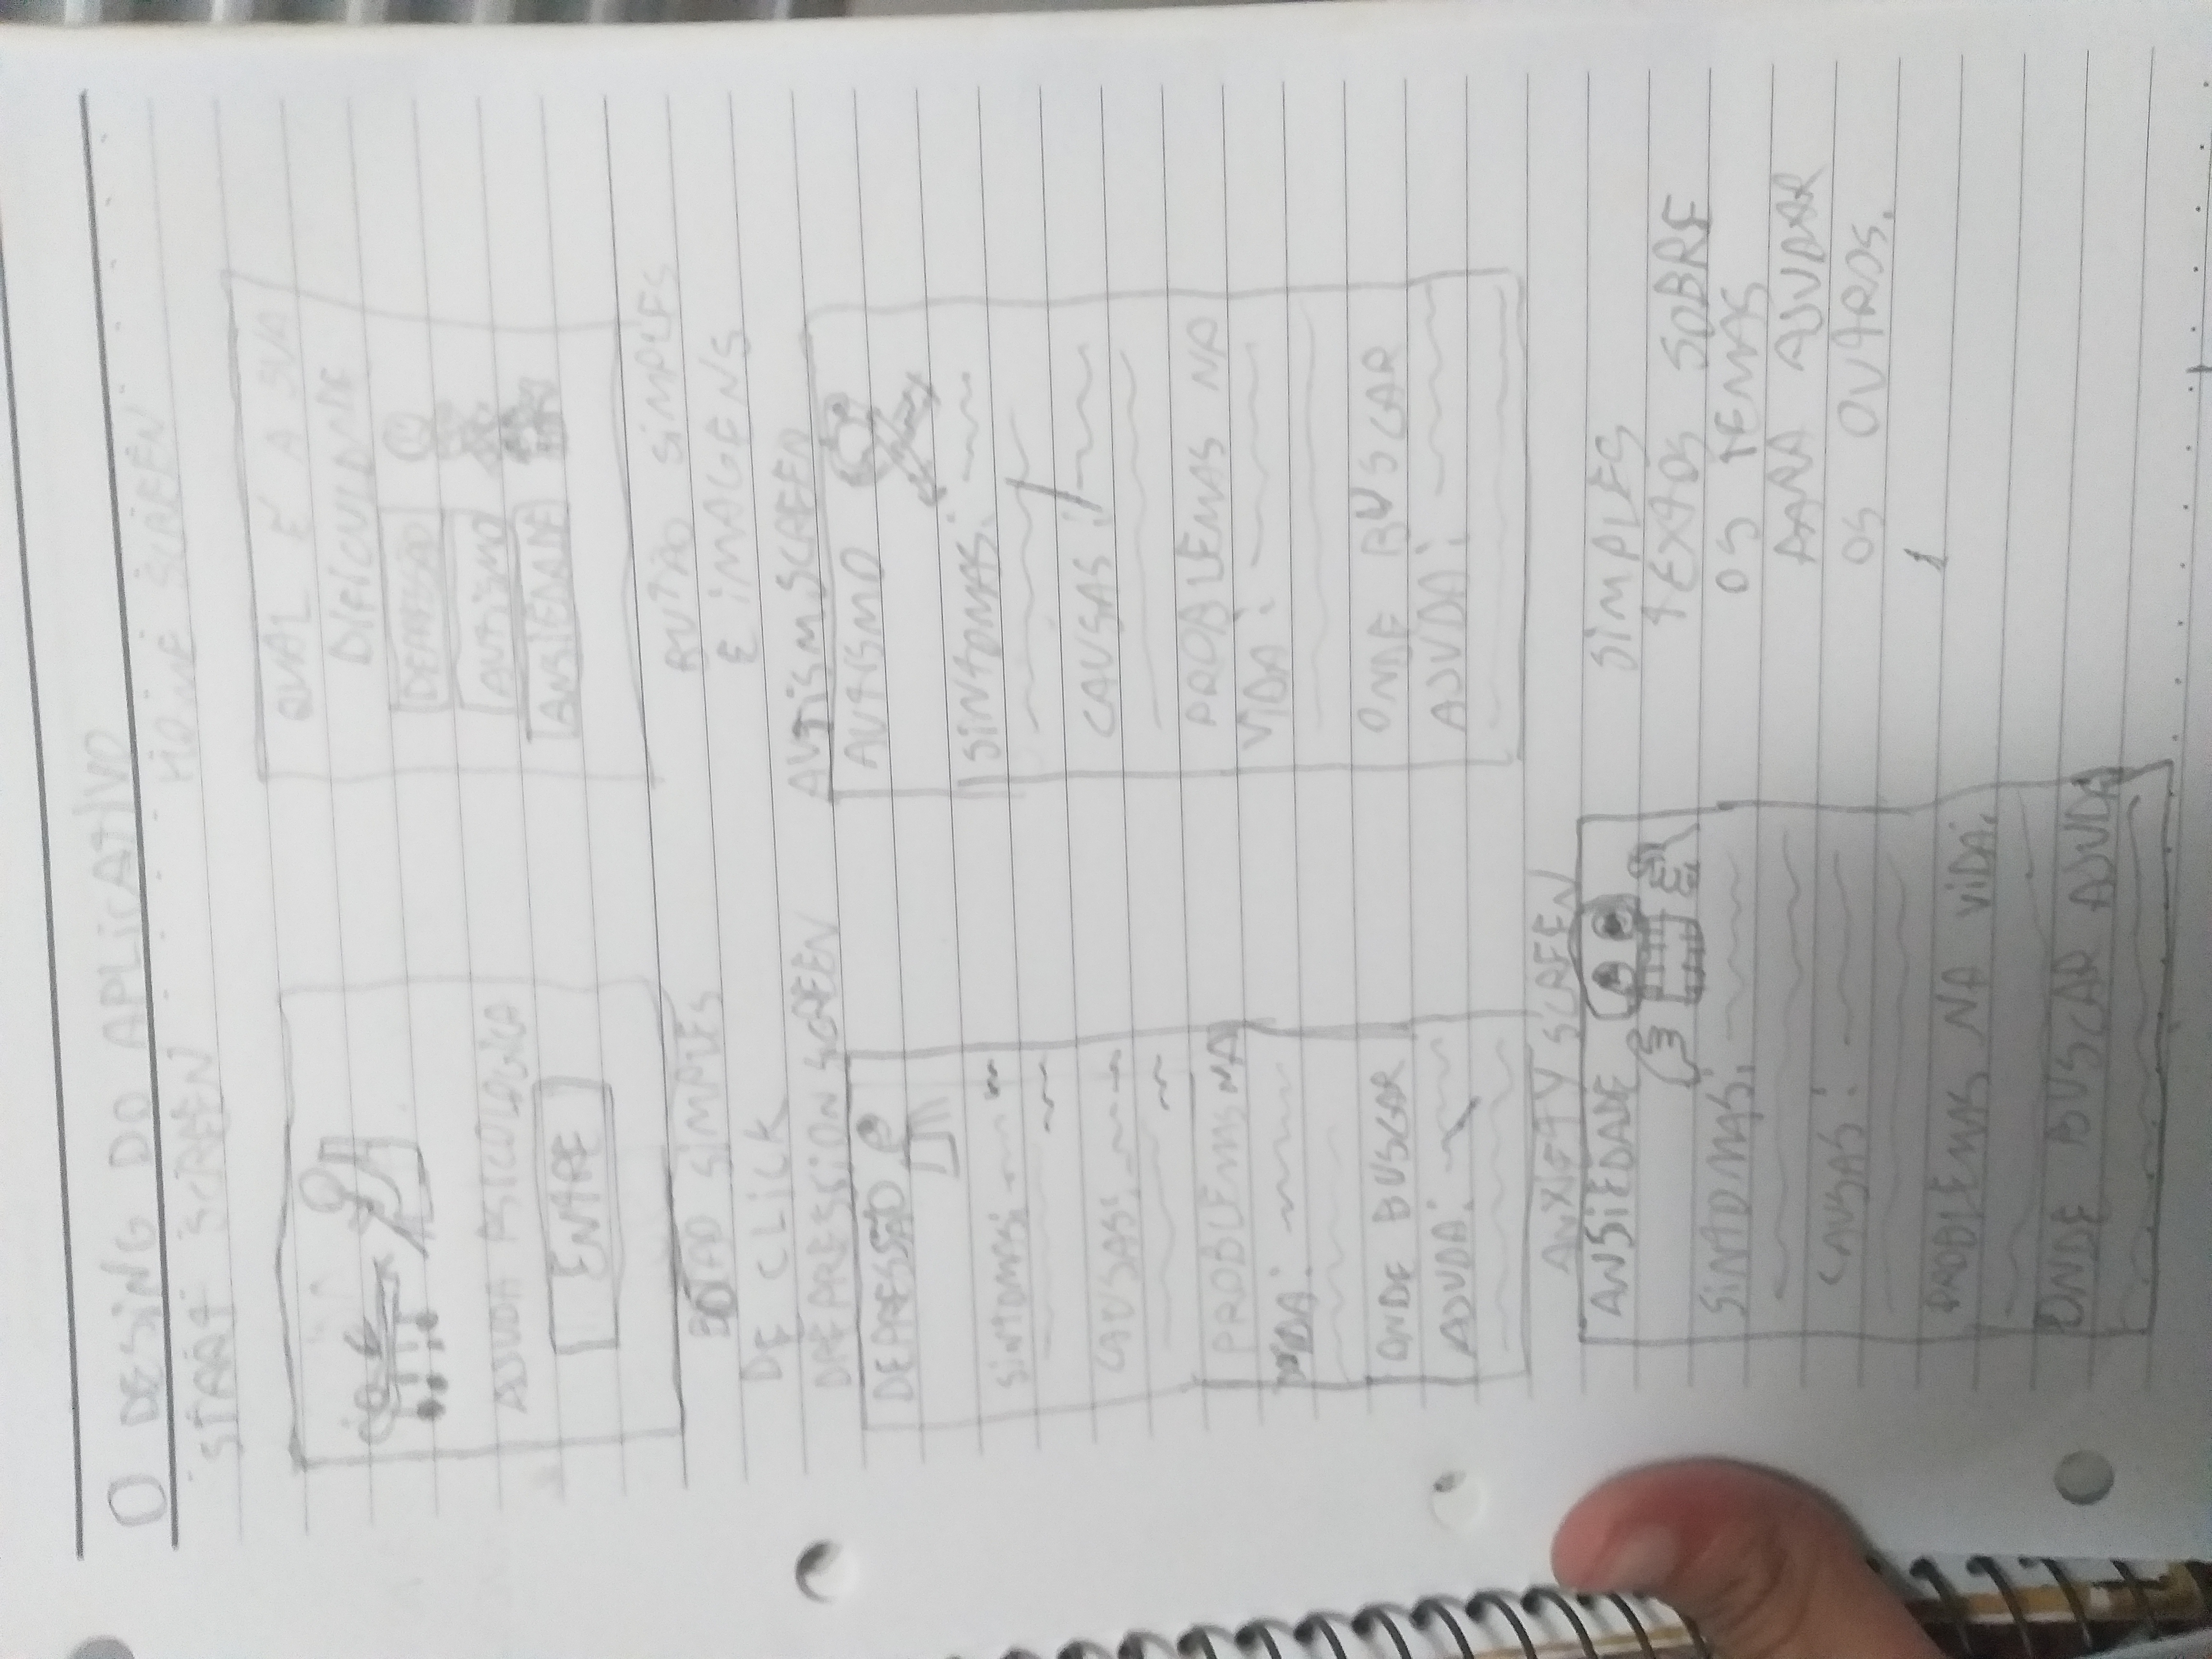 O DESING DO APLICATIVO
START SCREEN
AJUDA PSICOLOGICA
ENTRE
BOTAO SIMPLES
DE CLICK
HOME SCREEN
QUAL É A SUA
DIFICULDADE
DEPRESSÃO
AUTISMO
ANSIEDADE
BUTÃO SIMPLES
E IMAGENS
DREPRESSION SCREEN
DEPRESSÃO
SINTOMAS:
CAUSAS:
PROBLEMAS NA
VIDA:
ONDE BUSCAR
AJUDA:
AUTISM SCREEN
AUTISMO
SINTOMAS:
CAUSAS:
PROBLEMAS NA
VIDA:
ONDE BUSCAR
AJUDA:
ANXIETY SCREEN
ANSIEDADE
SINTOMAS:
CAUSAS:
PROBLEMAS NA VIDA:
ONDE BUSCAR AJUDA
SIMPLES
TEXTOS SOBRE
OS TEMAS
PARA AJUDAR
OS OUTROS.